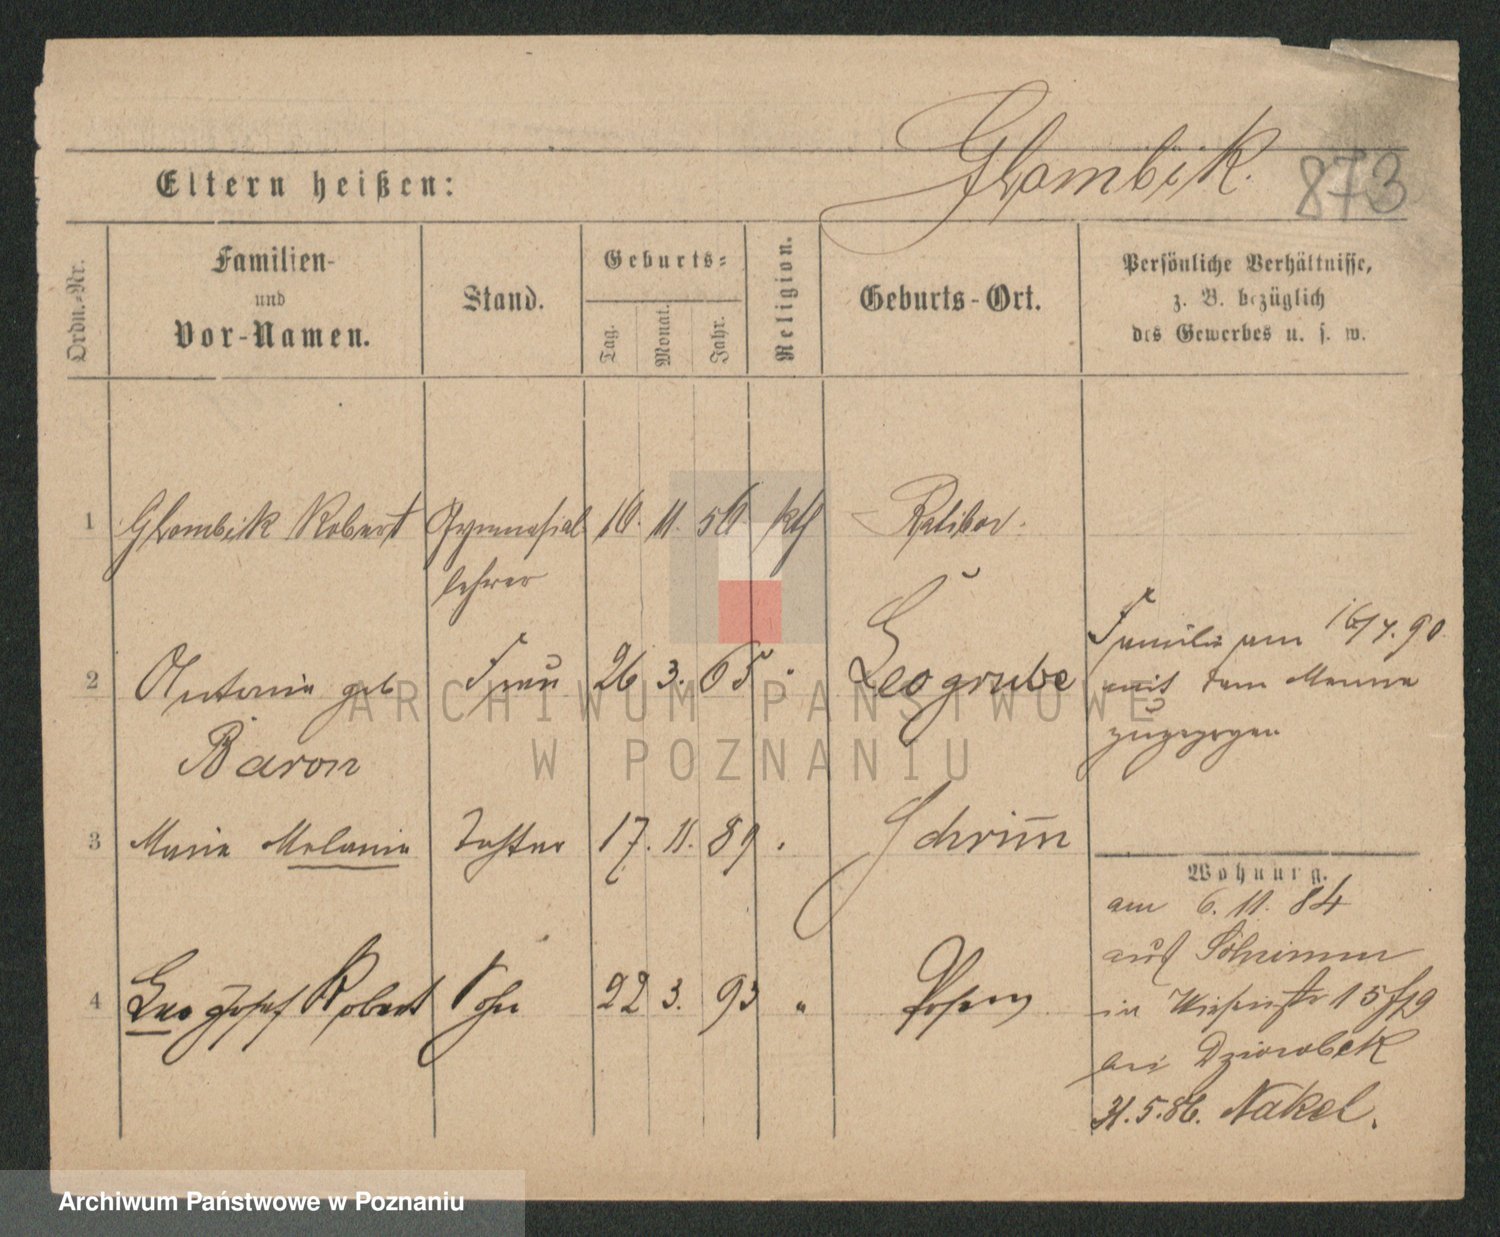 Glombik.
873
Eltern heißen:
Ordn.-Nr.
Familien-
und
Vor-Namen.
Stand.
Geburts-
Tag.
Monat.
Jahr.
Religion.
Geburts-Ort.
Persönliche Verhältnisse,
z. B. bezüglich
des Gewerbes u. s. w.
1 Glombik Robert Gymnasial 16. 11. 56 kth Ratibor.
lehrer
2 Antonie geb Frau 26 3. 65 " Leogrube
Baron
Familie am 16/7. 90.
mit dem Manne
zugezogen
3 Marie Melanie Tochter 17. 11. 89 " Schrim̄
4 Leo Josef Robert Sohn 22 3. 93 " Posen
Wohnung.
am 6. 11. 84
aus Schrimm
in Wiesenstr 15
bei Dziorobek
31.5.86. Nakel.
ARCHIWUM PAŃSTWOWE
W POZNANIU
Archiwum Państwowe w Poznaniu